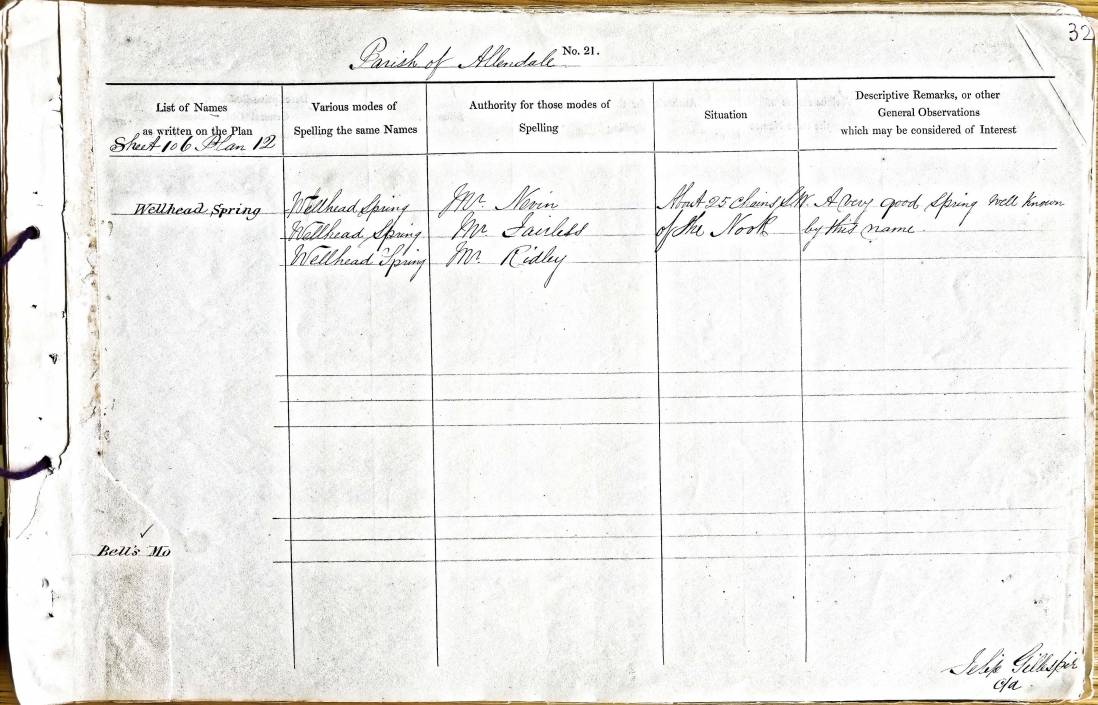 32
Parish of Allendale No. 21.
List of Names
as written on the Plan
Various modes of
Spelling the same Names
Authority for those modes of
Spelling
Situation
Descriptive Remarks, or other
General Observations
which may be considered of Interest
Sheet 106 Plan 12
Wellhead Spring Wellhead Spring Mr. Nevin About 25 chains S.W. A very good Spring well known
Wellhead Spring Mr. Fairless of the Nook by this name.
Wellhead Spring Mr. Ridley
Bell's Mo
Gillespie
c/a